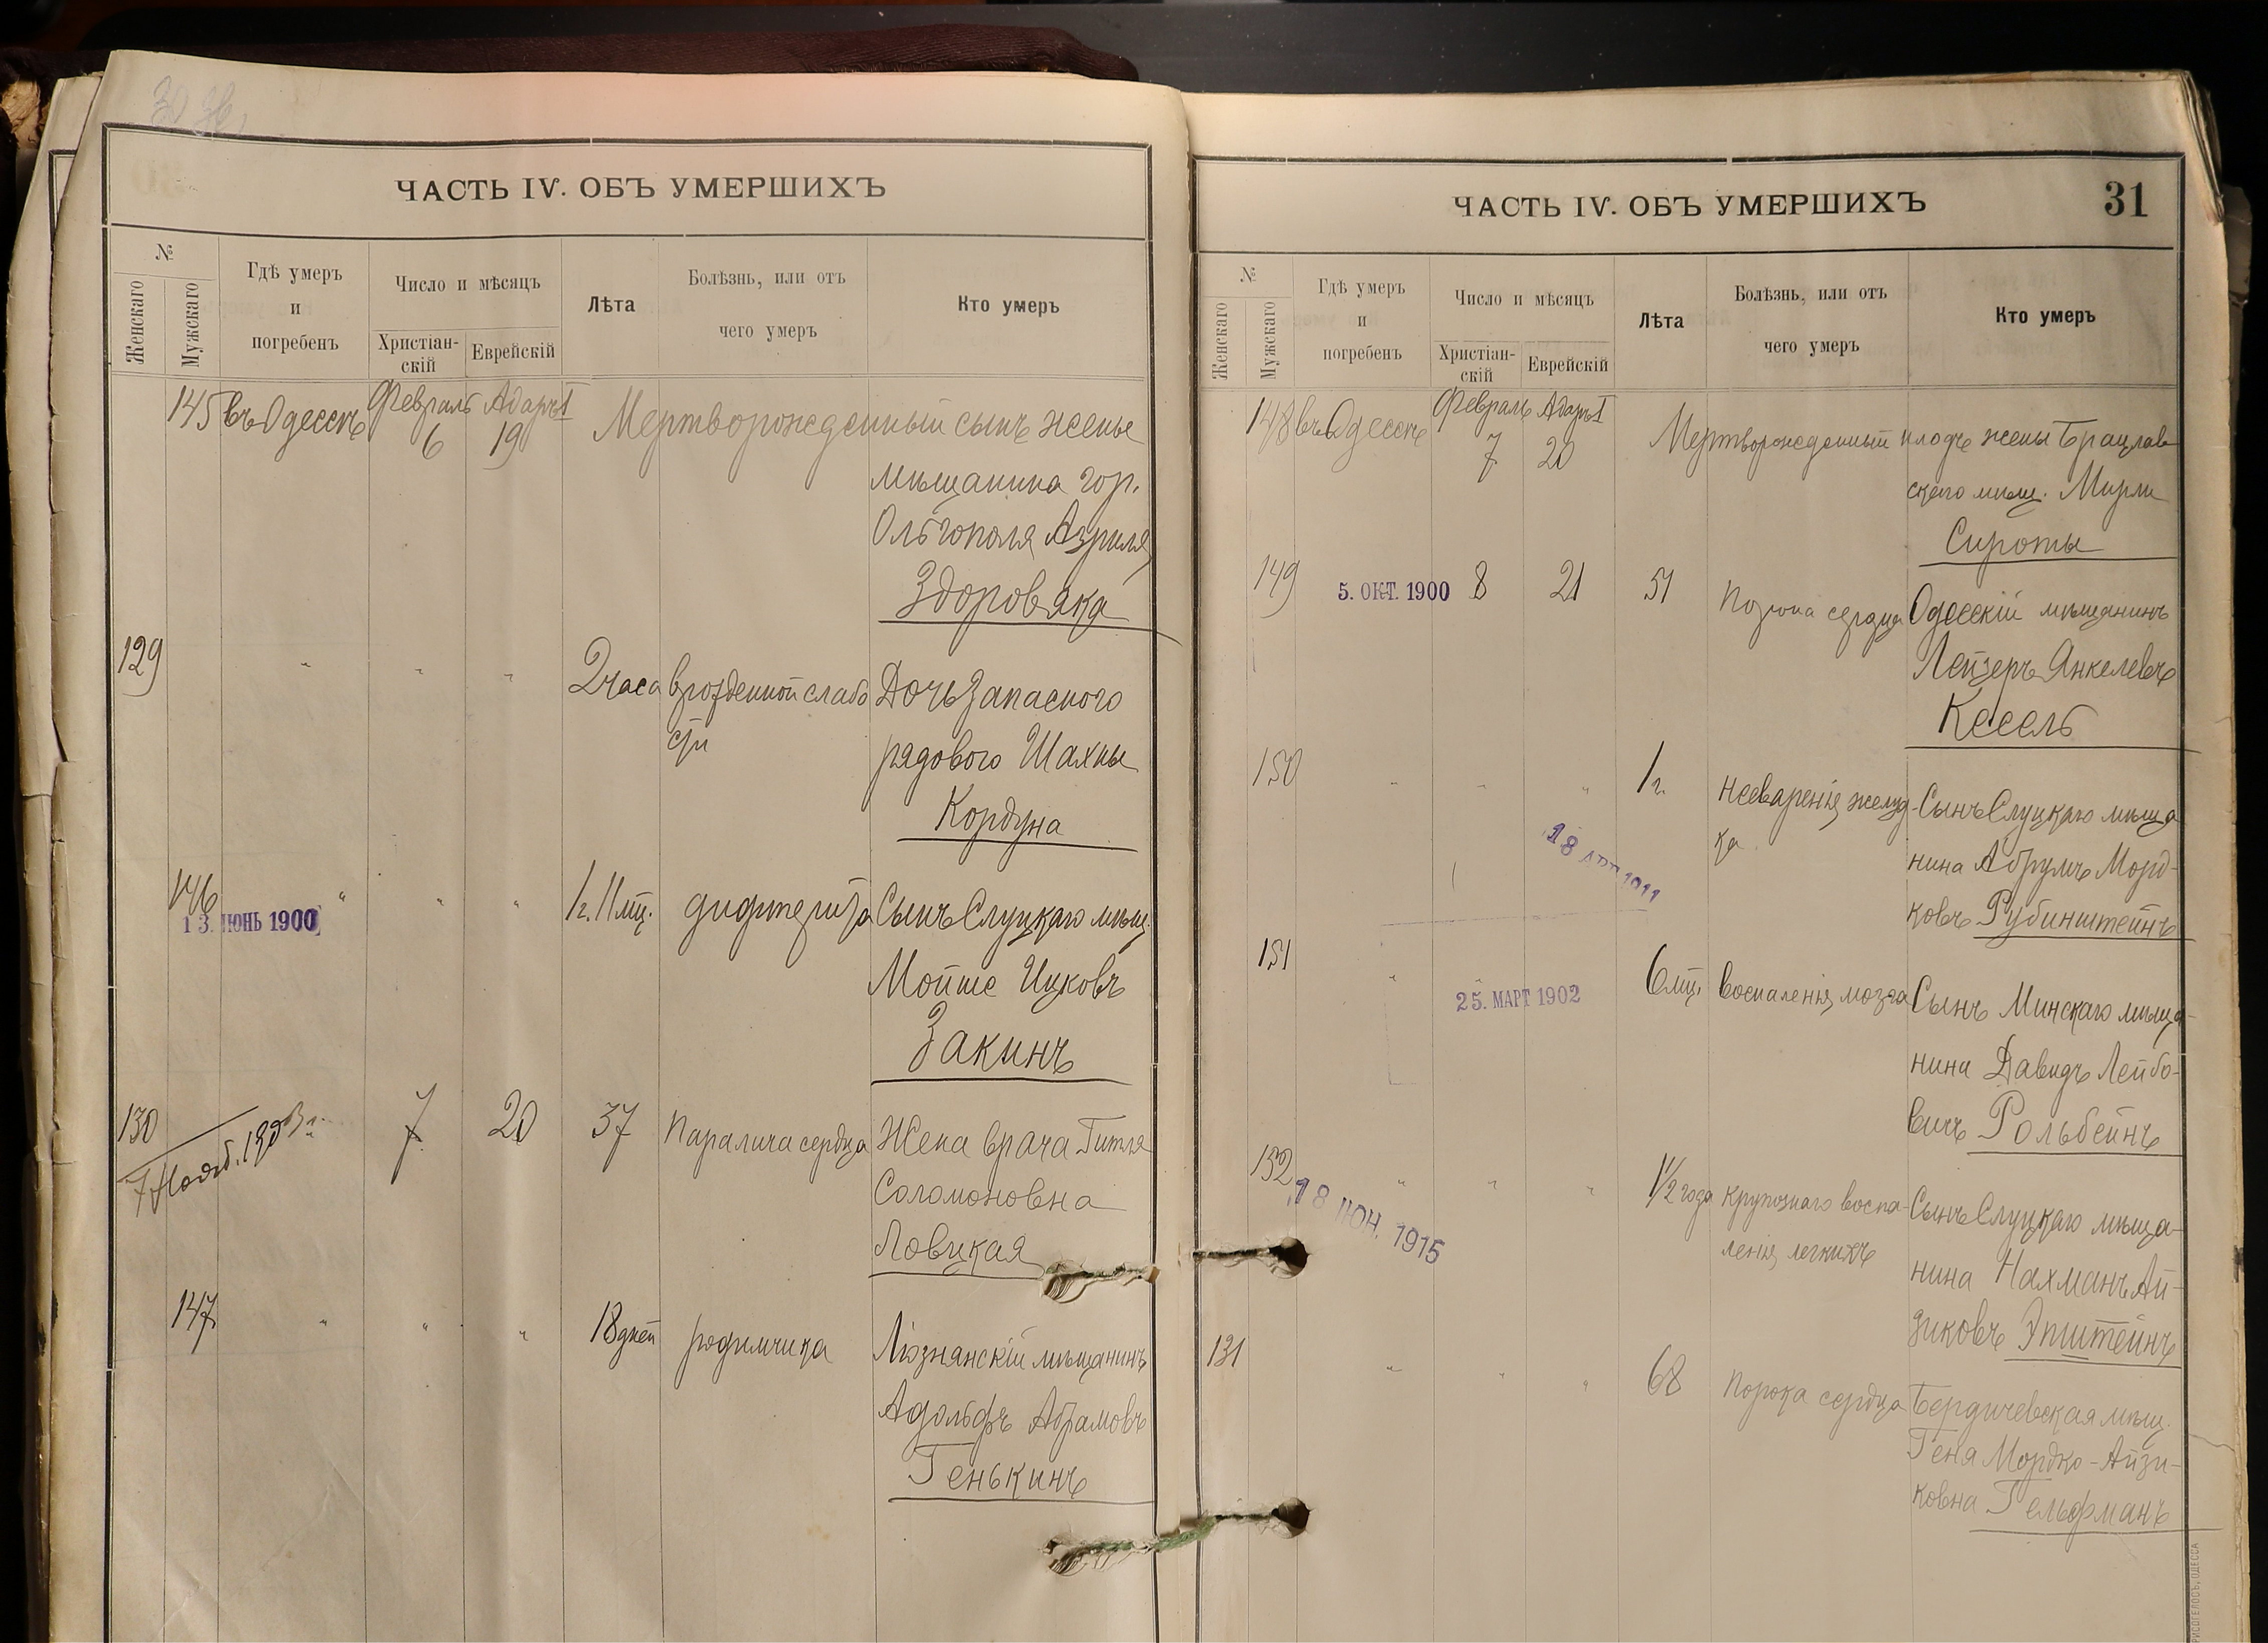 30
ЧАСТЬ IV. ОБЪ УМЕРШИХЪ
№
Женскаго
Мужскаго
Гдѣ умеръ
и
погребенъ
Число и мѣсяцъ
Христіан-
скій
Еврейскій
Лѣта
Болѣзнь, или отъ
чего умеръ
Кто умеръ
145 въ Одессѣ Февраль 6 Адаръ I 19 Мертворожденный сынъ жены
мѣщанина гор.
Ольгополя Азриля
Здоровяка
129 " " " 2 часа врожденной слабо Дочь запаснаго
сти рядового Шахны
Кордуна
146 " " " 1 г. 11 мц. дифтерита Сынъ Слуцкаго мѣщ.
13. ІЮНЬ 1900
Мойше Ицковъ
Закинъ
130 7 20 37 Паралича сердца Жена врача Гитля
7 Нояб. 1903 г.
Соломоновна
Ловцкая
147 " " " 18 дней родимчика Лiознянскій мѣщанинъ
Адольфъ Абрамовъ
Генькинъ
ЧАСТЬ IV. ОБЪ УМЕРШИХЪ
31
№
Женскаго
Мужскаго
Гдѣ умеръ
и
погребенъ
Число и мѣсяцъ
Христіан-
скій
Еврейскій
Лѣта
Болѣзнь, или отъ
чего умеръ
Кто умеръ
148 въ Одессѣ Февраль 7 Адаръ I 20 Мертворожденный плодъ жены Брацлав
скаго мѣщ. Мирли
Сироты
149 5. ОКТ. 1900 8 21 51 Порока сердца Одесскій мѣщанинъ
Лейзеръ Янкелевъ
Кесель
150 " " " 1 г. Несваренія желуд- Сынъ Слуцкаго мѣща
ка нина Абрумъ Морд-
18 АПР 1911
ковъ Рубинштейнъ
151 " " 6 мц. Воспаленія мозга Сынъ Минскаго мѣща-
25. МАРТ 1902
нина Давидъ Лейбо-
вичъ Рольбейнъ
152 " " " 1 1/2 года крупознаго воспа- Сынъ Слуцкаго мѣща-
18 ІЮН. 1915
ленія легкихъ
нина Нахманъ Ай-
зиковъ Эпштейнъ
131 " " " 68 Порока сердца Бердичевская мѣщ.
Геня Мордко-Айзи-
ковна Гельфманъ